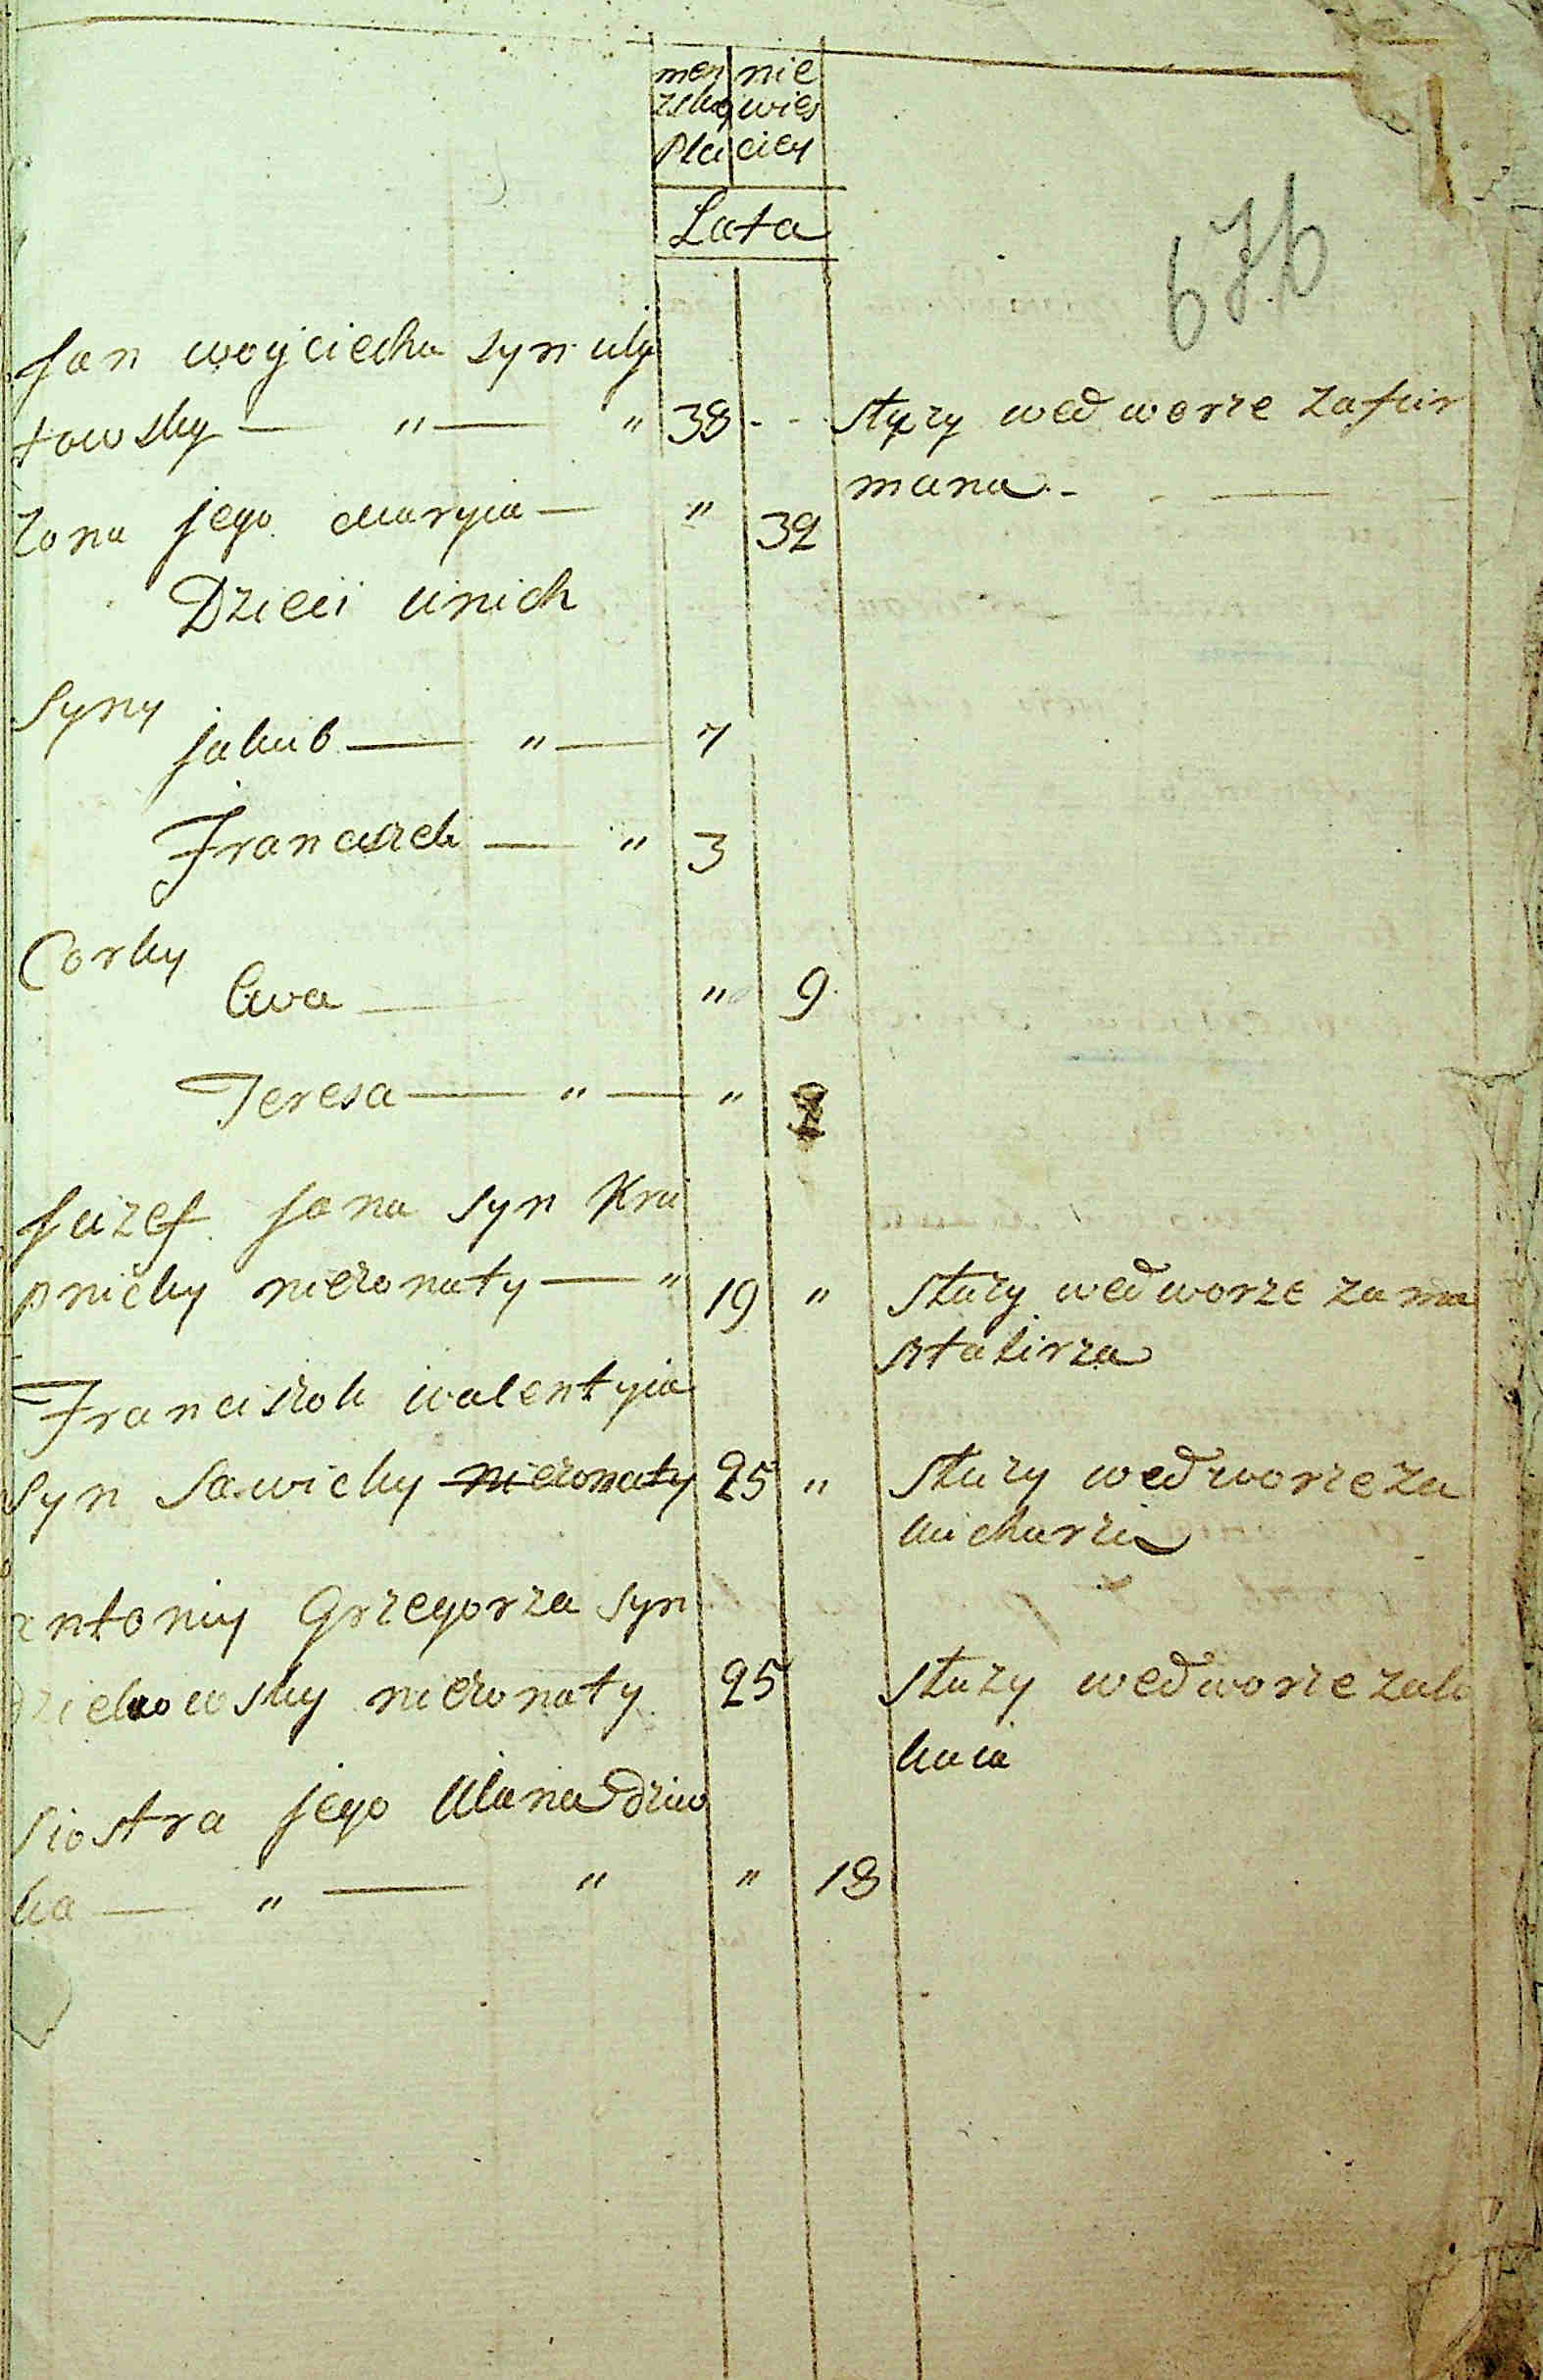 męz nie
zskey wies
Płci ciey
Lata
67b
Jan woyciecha syn uly
towsky — " — " 38 - - słuzy wed worze za fur
mana - - —
zona jego Maryia — " 32
Dzieci unich
Syny
Jakub — " — 7
Franciszek — " 3
Corky
Ewa — " 9
Teresa — " — " 2
Juzef Jana syn Kru
pnicky niezonaty — " 19 " słuzy wed worze za ma
sztalirza
Franciszek walentyia
syn Sawicky niezonaty 25 " słuzy wed worze za
kucharza
Antoniy Grzegorza syn
niezonaty 25 słuzy wed worze zalo
kaia
Siostra jego Ulana dziw
ka — " — " " 18